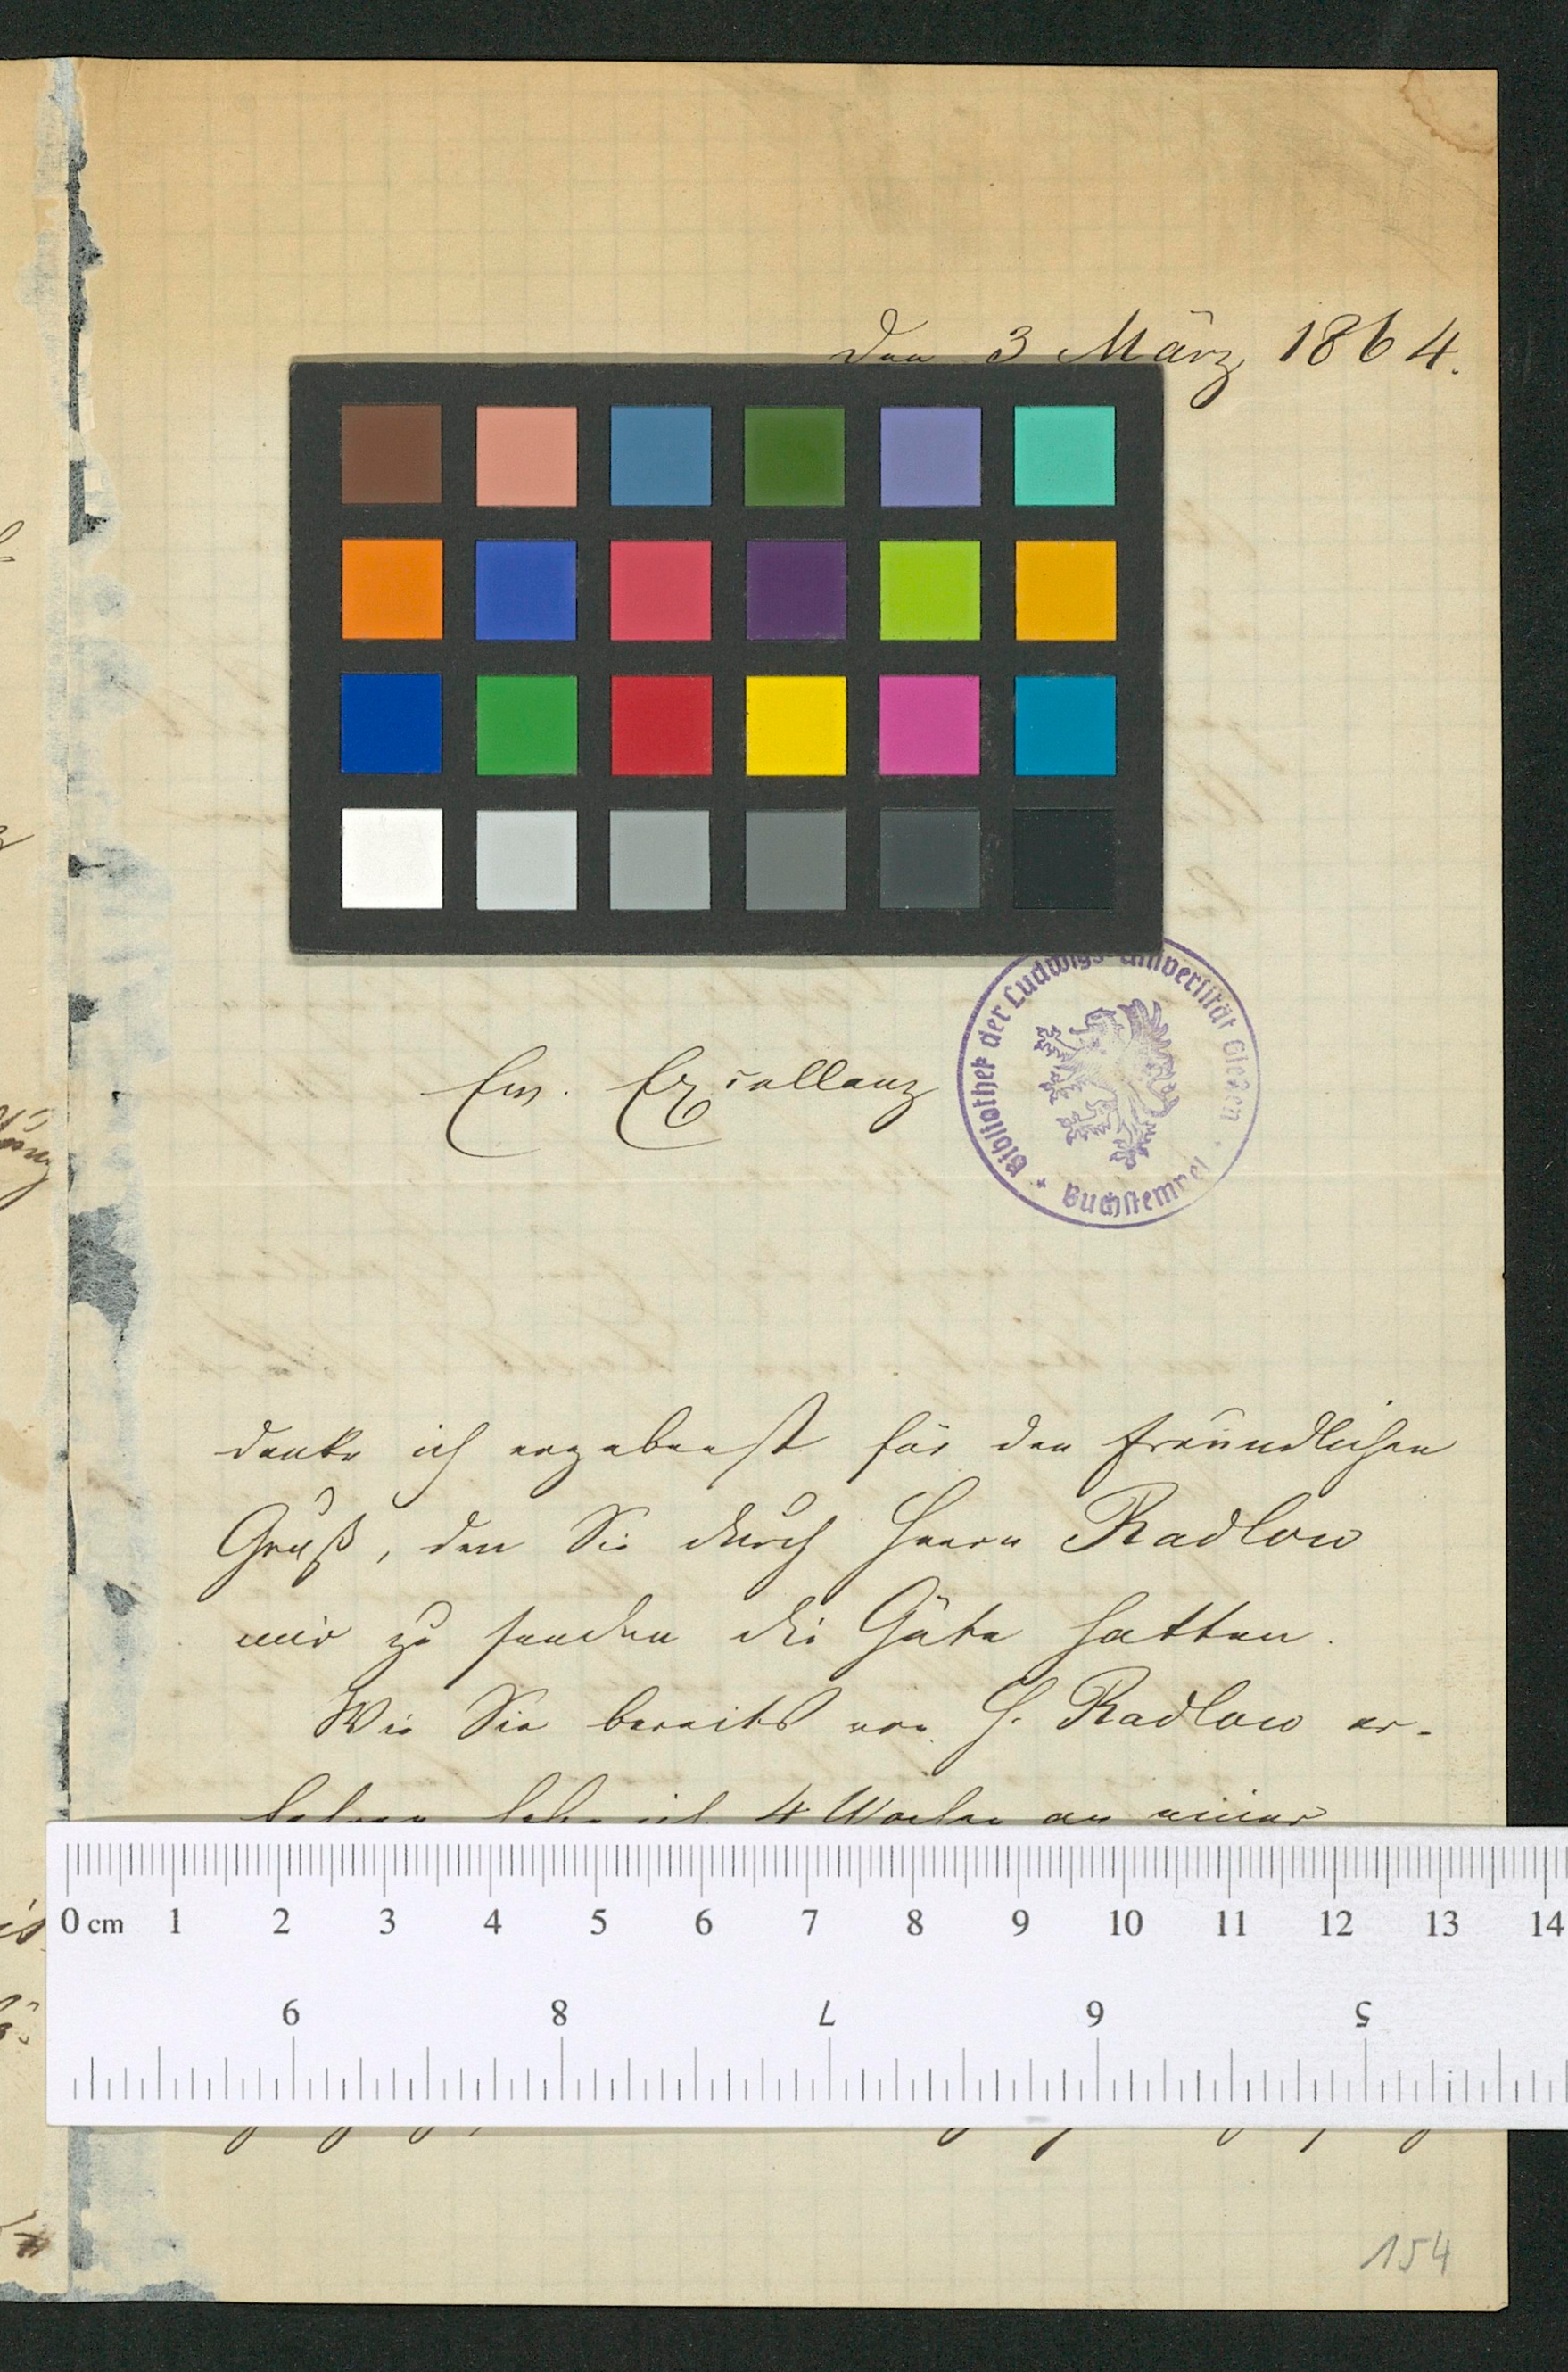 den 3 März 1864.
Bibliothek der Ludwigs-Universität Gießen
Buchstempel
Ew. Excellenz
danke ich ergebenst für den freundlichen
Gruß, den Sie durch Herrn Radlow
mir zu senden die Güte hatten.
Wie Sie bereits von H. Radlow er-
4 Wochen an einer
0 cm 1 2 3 4 5 6 7 8 9 10 11 12 13 14
9 8 7 6 5
154